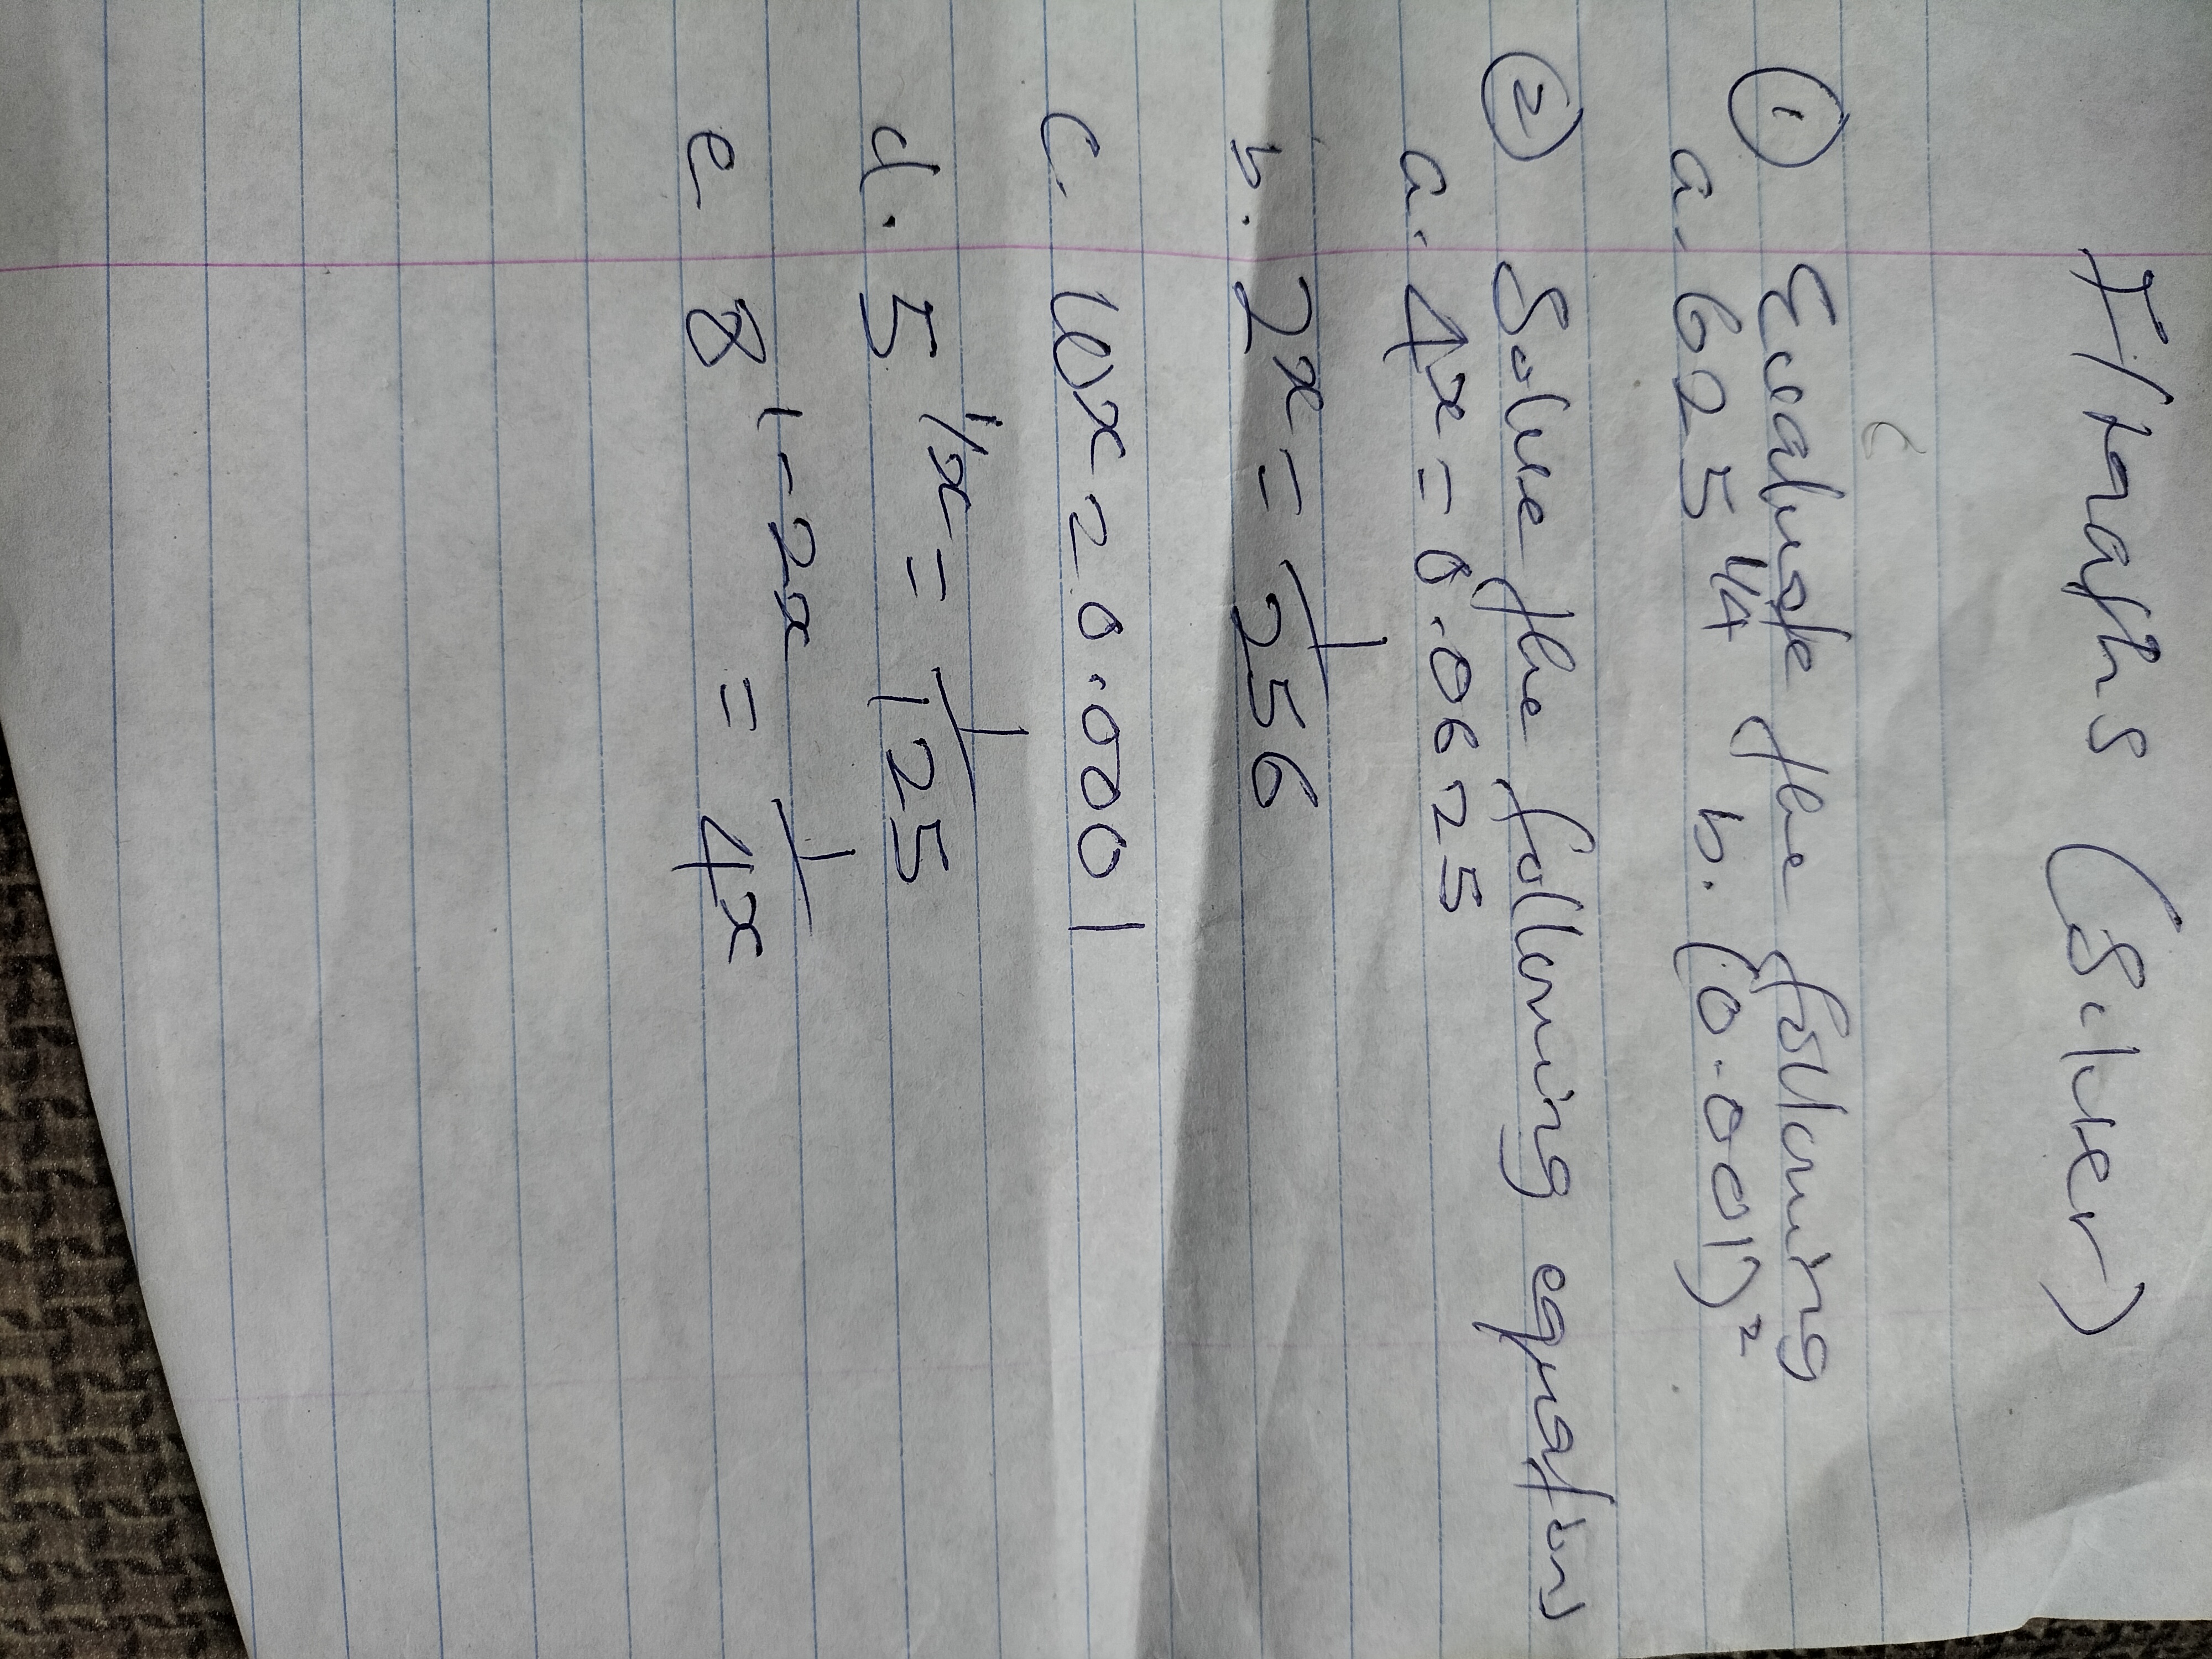 F/Maths (Silver)
① Evaluate the following
a. 625 ¼ b. (0.001)²
② Solve the following equations
a. 4x = 0.0625
b. 2x = 1/256
c. 10x = 0.0001
d. 5 ¹/x = 1/125
e 8 ¹⁻²ˣ = 1/4x